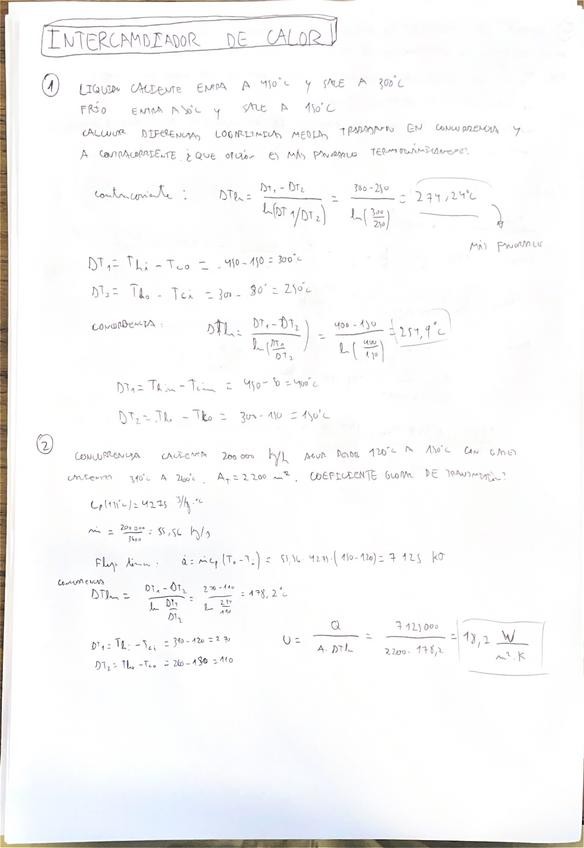 INTERCAMBIADOR DE CALOR
① LIQUIDO CALIENTE ENTRA A 450°C Y SALE A 300°C
FRÍO ENTRA A 50°C Y SALE A 150°C
CALCULAR DIFERENCIAS LOGARITMICAS MEDIAS TRABAJANDO EN CONCURRENCIA Y
A CONTRACORRIENTE ¿QUE OPCIÓN ES MÁS FAVORABLE TERMODINÁMICAMENTE?
Contracorriente : DTln = (DT1 - DT2) / ln(DT1/DT2) = (300-250) / ln(300/250) = 274,24°C
MÁS FAVORABLE
DT1 = Thi - Tco = 450-150 = 300°C
DT2 = Tho - Tci = 300 - 50° = 250°C
CONCURRENCIA: DTln = (DT1 - DT2) / ln(DT1/DT2) = (400-150) / ln(400/150) = 254,9°C
DT1 = Thin - Tcin = 450-50 = 400°C
DT2 = Tho - Tco = 300-150 = 150°C
② CONCURRENCIA CALIENTA 200 000 kg/h AGUA DESDE 120°C A 150°C CON GASES
340°C A 260°C. AT = 2200 m². COEFICIENTE GLOBAL DE TRANSMISIÓN?
Cp(135°C) = 4275 J/kg·°C
ṁ = 200 000/3600 = 55,56 kg/s
Q̇ = ṁ cp (To - Ti) = 55,56 · 4275 · (150-120) = 7 125
CONCURRENCIA
DTln = (DT1 - DT2) / ln(DT1/DT2) = 178,2°C
DT1 = Thi - Tci = 390-120 = 270
DT2 = Tho - Tco = 260-150 = 110
U = Q / (A · DTln) = 7125000 / (2200 · 178,2) = 18,2 W/m²·K